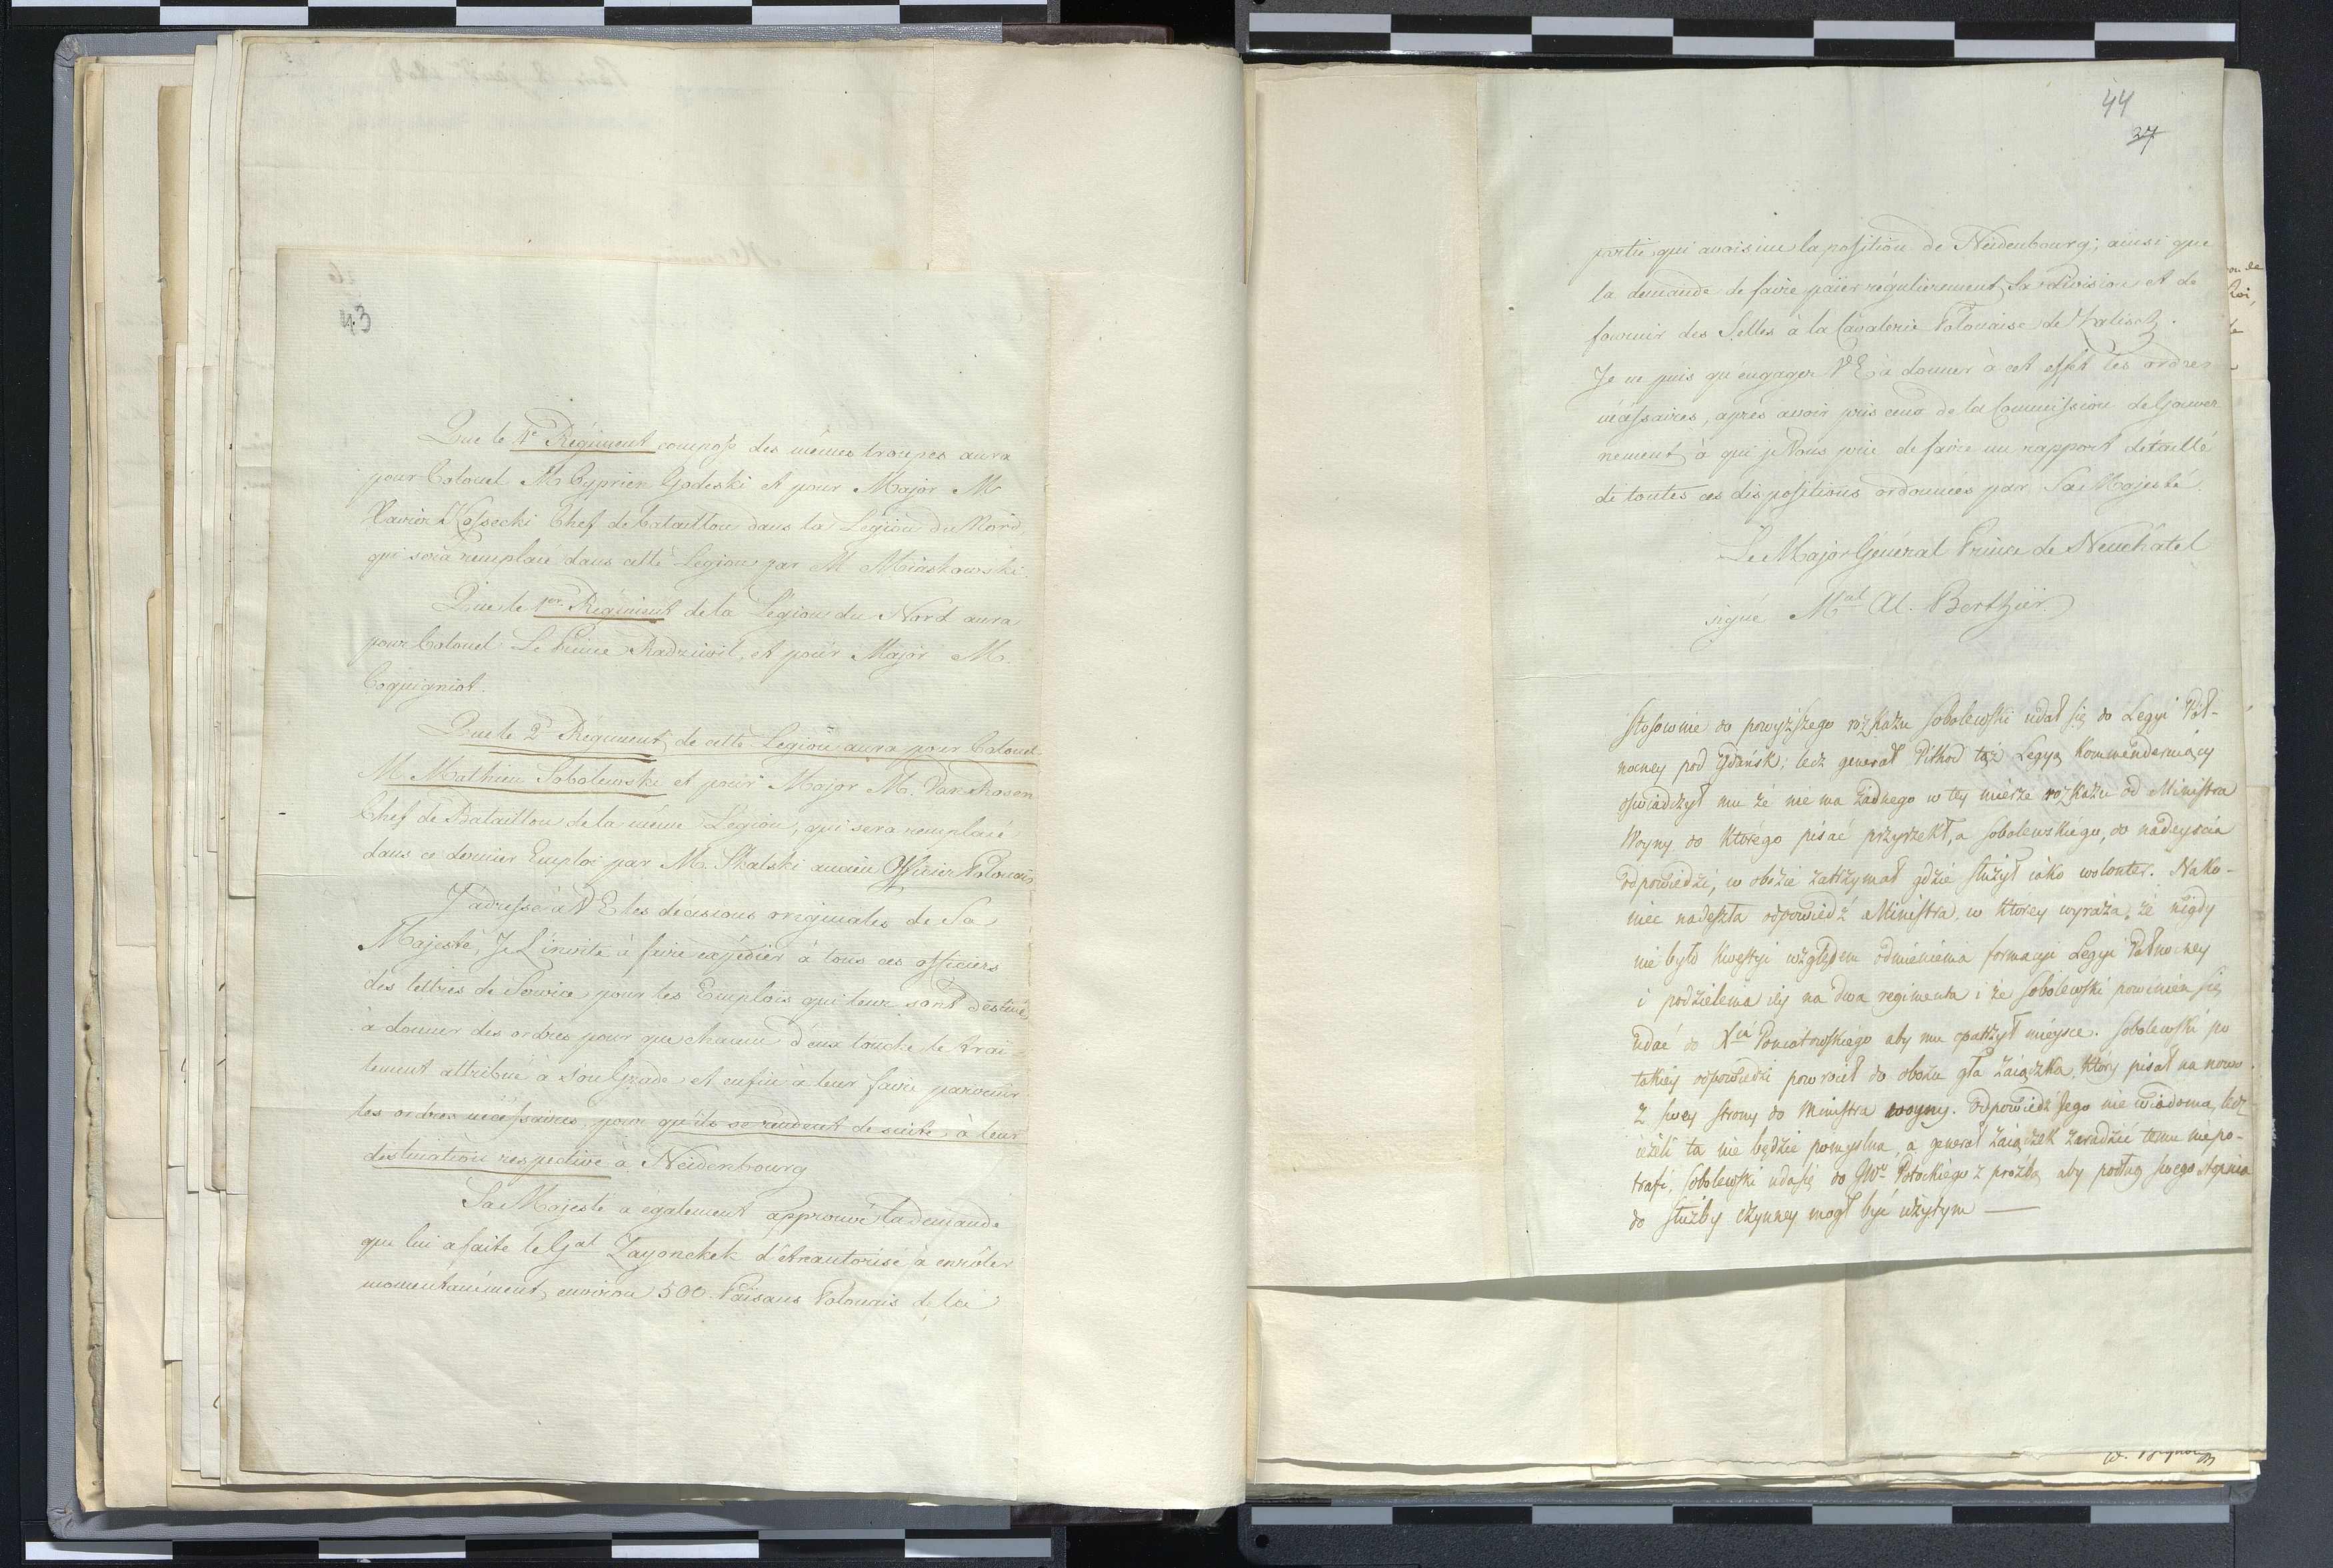 43
Que le 4e Régiment composé des mêmes troupes aura
pour Colonel M. Cyprien Godeski et pour Major M.
Xavier Kossecki Chef de bataillon dans la Légion du Nord,
qui sera remplacé dans cette Légion par M. Miaskowski.
Que le 1er Régiment de la Légion du Nord aura
pour Colonel Le Prince Radziwil, et pour Major M.
Coquigniot.
Que le 2d Régiment de cette Légion aura pour Colonel
M. Mathieu Sobolewski et pour Major M. Vanrhosen
Chef de Bataillon de la même Légion, qui sera remplacé
dans ce dernier Emploi par M. Skalski ancien Officier Polonais
J'adresse à V E les décisions originales de Sa
Majesté, Je L'invite à faire expédier à tous ces officiers
des lettres de Service pour les Emplois qui leur sont destinés
à donner des ordres pour que chacun d'eux touche le trai-
tement attribué à son Grade et enfin à leur faire parvenir
les ordres nécessaires pour qu'ils se rendent de suite à leur
destination respective à Neidenbourg
Sa Majesté a également approuvé la demande
que lui a faite le Gal Zayonchek d'être autorisé à enrôler
momentanément environ 500 Païsans Polonais de la
44
37
partie qui avoisine la position de Neidenbourg; ainsi que
la demande de faire païer régulierement Sa division et de
fournir des Selles à la Cavalerie Polonaise de Kalisch.
Je ne puis qu'engager V E à donner à cet effet les ordres
nécessaires, après avoir pris ceux de la Commission de Gouver
nement à qui je Vous prie de faire un rapport détaillé
de toutes ces dispositions ordonnées par Sa Majesté.
Le Major Général Prince de Neuchâtel
signé Mal Al. Berthier
Stosownie do powyższego rozkazu Sobolewski udał się do Legyi Pół-
nocney pod Gdańsk; lecz generał Pithod tąż Legyą kommenderuiący
oświadczył mu że nie ma żadnego w tey mierze rozkazu od Ministra
Woyny do którego pisać przyrzekł, a Sobolewskiego, do nadeyscia
odpowiedzi, w obozie zatrzymał gdzie służył iako wolonter. Nako-
niec nadeszła odpowiedź Ministra, w którey wyraża, że nigdy
nie było kwestyi względem odmienienia formacyi Legyi Północney
i podzielenia iey na dwa regimenta i że Sobolewski powinien się
udać do Xcia Poniatowskiego aby mu opatrzył mieysce. Sobolewski po
takiey odpowiedzi powrócił do obozu gła Zaiączka, który pisał na nowo
z swey strony do Ministra woyny. Odpowiedź Jego nie wiadoma, lecz
ieżeli ta nie będzie pomyślna, a generał Zaiączek zaradzić temu niepo-
trafi, Sobolewski uda się do JWo Potockiego z prozbą aby podług swego stopnia
do służby czynney mogł być użytym —